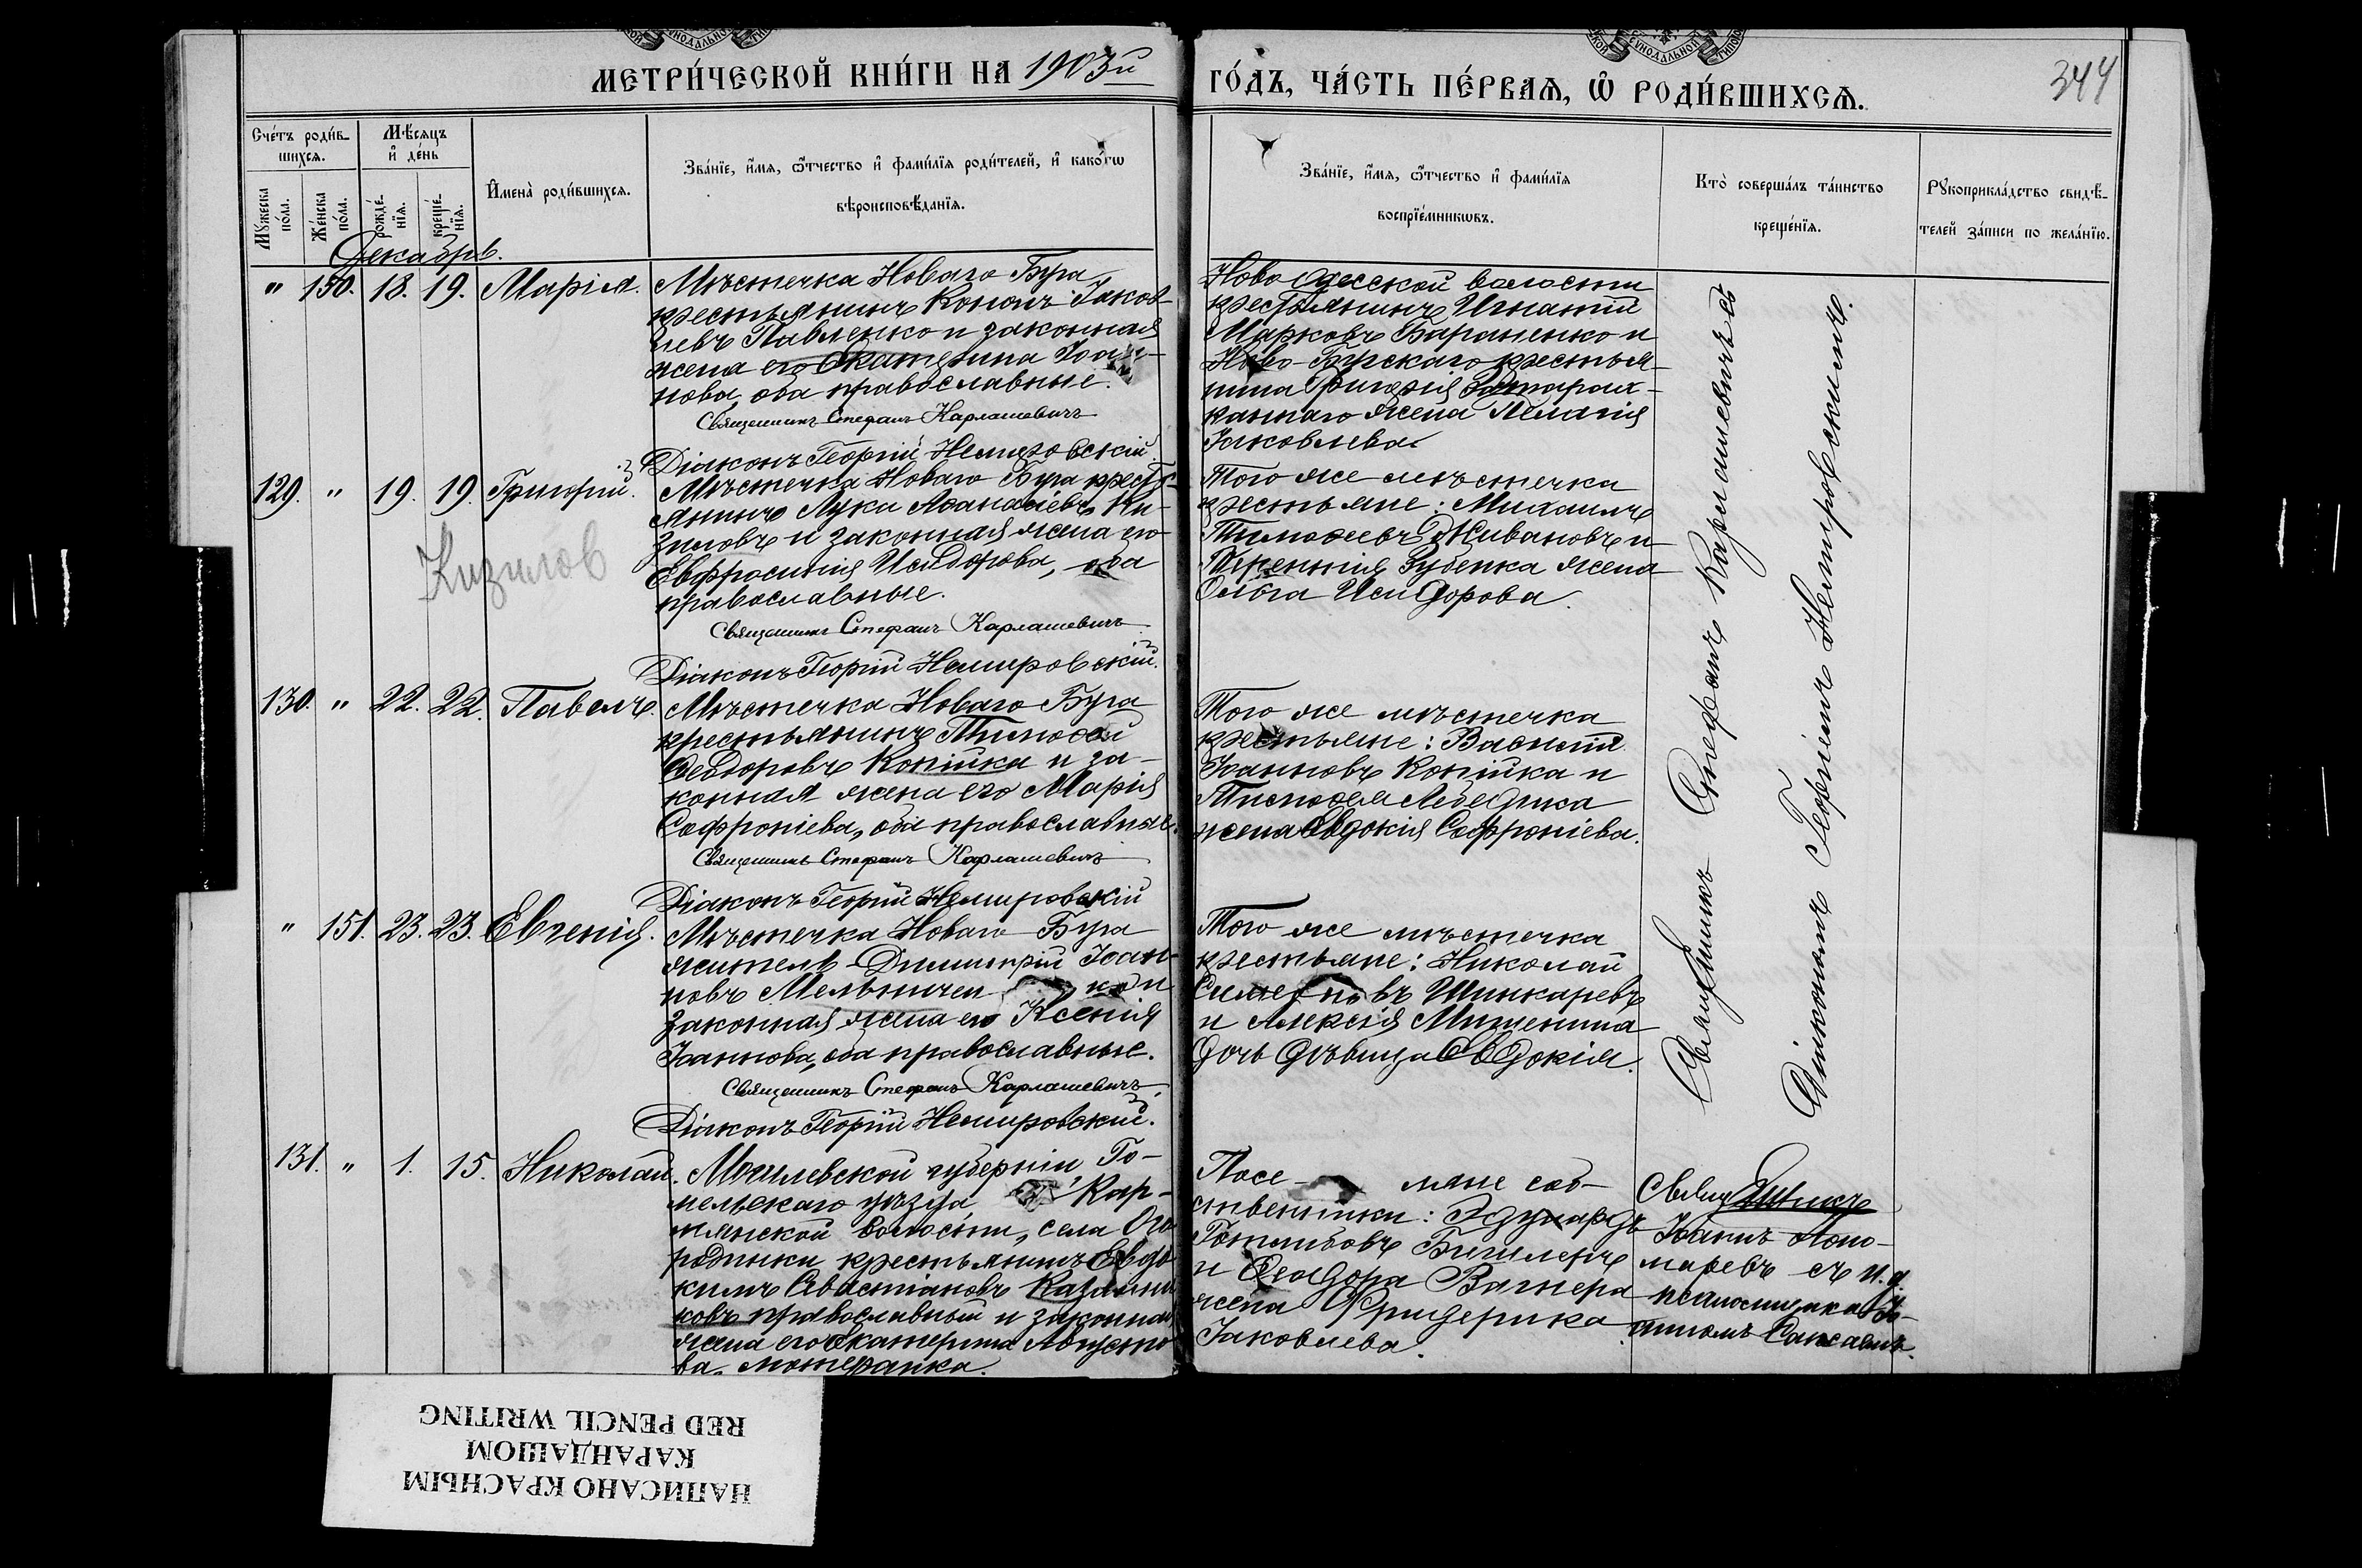 МЕТРИ́ЧЕСКОЙ КНИ́ГИ НА 1903й
ГО́ДЪ, ЧА́СТЬ ПЕ́РВАѦ, Ѡ РОДИ́ВШИХСѦ.
344
Сче́тъ роди́в-
шихсѧ.
Мѣ́сѧцъ
и де́нь
Мꙋ́жеска
по́ла.
Же́нска
по́ла.
рожде́-
нїѧ.
креще́-
нїѧ.
Имена̀ роди́вшихсѧ.
Зва́нїе, и́мѧ, ѻ́тчество и фами́лїѧ роди́телей, и како́гѡ
вѣроисповѣ́данїѧ.
Зва́нїе, и́мѧ, ѻ́тчество и фами́лїѧ
воспрїе́мникѡвъ.
Кто̀ соверша́лъ та́инство
креще́нїѧ.
Рꙋкоприкла́дство свидѣ́-
телей за́писи по жела́нїю.
Декабрь.
" 150. 18. 19. Марія.
Мѣстечка Новаго Буга
крестьянинъ Кононъ Іаков-
левъ Павленко и законная
жена его Екатерина Іоан-
нова, оба православные.
Священникъ Стефанъ Карлашевичъ
Діаконъ Георгій Немировскій.
Ново Одесской волости
крестьянинъ Игнатій
Марковъ Бараненко и
Ново-Бугскаго крестья-
нина Григорія
жена Пелагія
Іаковлева.
129. " 19. 19. Григорій.
Кизилов
Мѣстечка Новаго Буга кресть-
янинъ Лука Аѳанасіевъ Ки-
зиловъ и законная жена его
Евфросинія Исидорова, оба
православные.
Священникъ Стефанъ Карлашевичъ
Діаконъ Георгій Немировскій.
Того же мѣстечка
крестьяне: Михаилъ
Тимоѳеевъ Живановъ и
Терентія Зубенка жена
Ольга Исидорова.
130. " 22. 22. Павелъ.
Мѣстечка Новаго Буга
крестьянинъ Тимоѳей
Ѳеодоровъ Копійка и за-
конная жена его Марія
Софроніева, оба православные.
Священникъ Стефанъ Карлашевичъ
Діаконъ Георгій Немировскій
Того же мѣстечка
крестьяне: Василій
Іоанновъ Копійка и
Тимоѳея Лебедика
жена Евдокія Софроніева.
" 151. 23. 23. Евгенія.
Мѣстечка Новаго Буга
житель Димитрій Іоан-
новъ Мельничен ко и
законная жена его Ксенія
Іоаннова, оба православные.
Священникъ Стефанъ Карлашевичъ
Діаконъ Георгій Немировскій.
Того же мѣстечка
крестьяне: Николай
Симеоновъ Шинкаревъ
и Алексія Мишенина
дочь дѣвица Евдокія.
Священникъ Стефанъ Карлашевичъ съ
Діакономъ Георгіемъ Немировскимъ.
131. " 1. 15. Николай.
Могилевской губерніи, Го-
мельскаго уѣзда, Кар-
мянской волости, села Ого-
родники крестьянинъ Евдо-
кимъ Севастіановъ
ковъ православный и законная
жена его Екатерина Августо-
ва, лютеранка.
Посе- ляне соб-
ственники: Эдуардъ
Готлибовъ
и Ѳеодора Вагнера
жена Фридерика
Іаковлева.
Священникъ
Іоаннъ Поно-
маревъ съ и. д.
псаломщика Іо-
анномъ
НАПИСАНО КРАСНЫМ
КАРАНДАШОМ
RED PENCIL WRITING